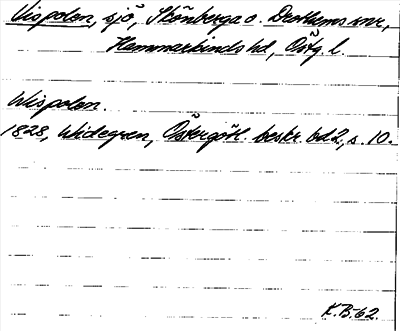 Vispolen, sjö, Skönberga o. Drothems snr,
Hammarkinds hd, Östg. l.
Wispolen.
1828, Widegren, Östergötl. beskr. bd 2, s. 10.
K.B. 62